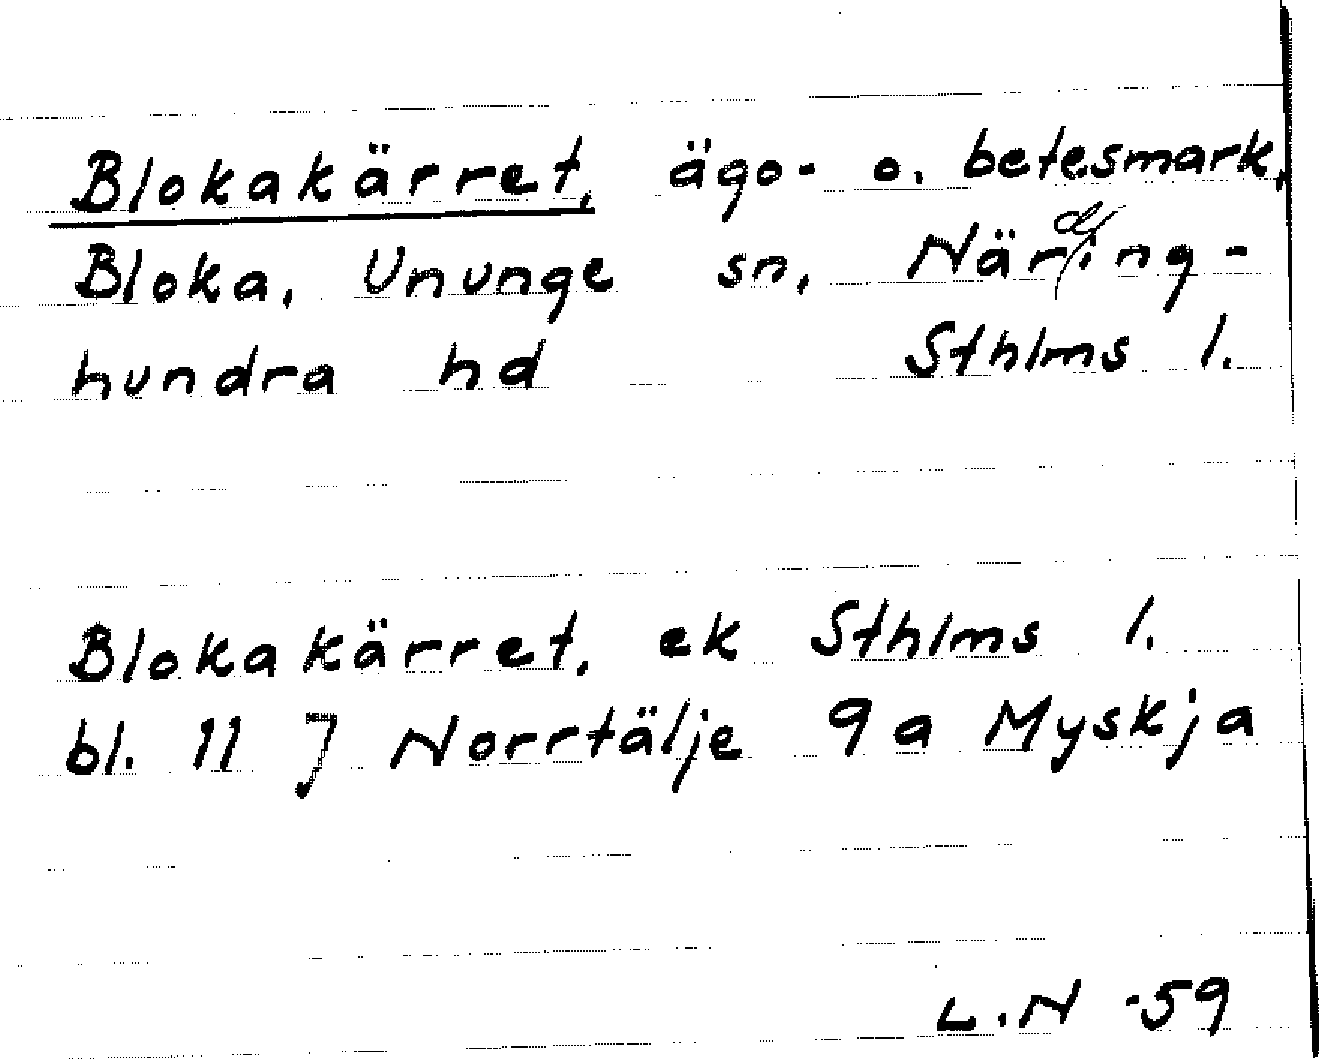 Blokakärret, ägo- o. betesmark,
Bloka, Ununge sn, Näring-
hundra hd Sthlms l.
Blokakärret, ek Sthlms l.
bl. 11 J Norrtälje 9a Myskja
L.N -59